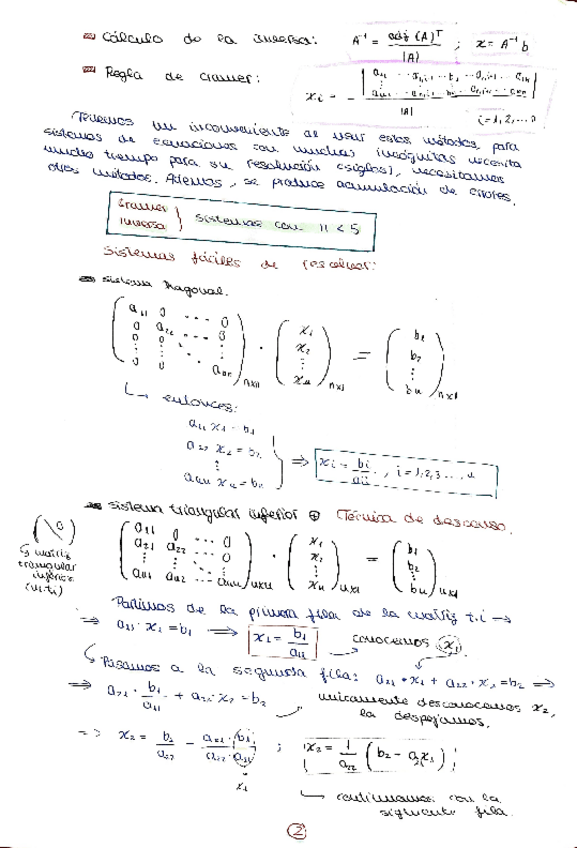 Cálculo de la inversa: A⁻¹ = adj (A)ᵀ / |A| ; x = A⁻¹ b
Regla de Cramer: xᵢ = |a₁₁ ... a₁,ᵢ₋₁ b₁ a₁,ᵢ₊₁ ... a₁ₙ| / |A|
i = 1, 2, ... n
Tenemos un inconveniente al usar estos métodos, para
sistemas de ecuaciones con muchas incógnitas necesita
mucho tiempo para su resolución (siglos), necesitamos
otros métodos. Además, se produce acumulación de errores.
Cramer
inversa } sistemas con n < 5
Sistemas fáciles de resolver:
Sistema Diagonal.
(a₁₁ 0 ... 0
0 a₂₂ ... 0
0 0 ⋱ ⋮
0 0 aₙₙ)ₙₓₙ · (x₁ x₂ ⋮ xₙ)ₙₓ₁ = (b₁ b₂ ⋮ bₙ)ₙₓ₁
↳ entonces:
a₁₁ x₁ = b₁
a₂₂ x₂ = b₂
⋮
aₙₙ xₙ = bₙ
⇒ xᵢ = bᵢ / aᵢᵢ , i = 1, 2, 3 ... n
Sistema triangular inferior ⊕ Técnica de descenso.
(\ 0)
↳ matriz
triangular
inferior
(m.t.i)
(a₁₁ 0 ... 0
a₂₁ a₂₂ ... 0
⋮
aₙ₁ aₙ₂ ... aₙₙ)ₙₓₙ · (x₁ x₂ ⋮ xₙ)ₙₓ₁ = (b₁ b₂ ⋮ bₙ)ₙₓ₁
Partimos de la primera fila de la matriz t.i →
⇒ a₁₁ · x₁ = b₁ ⇒ x₁ = b₁ / a₁₁ conocemos x₁
↳ Pasamos a la segunda fila: a₂₁ · x₁ + a₂₂ · x₂ = b₂ ⇒
⇒ a₂₁ · b₁ / a₁₁ + a₂₂ · x₂ = b₂
unicamente desconocemos x₂,
la despejamos.
=> x₂ = b₂ / a₂₂ − a₂₁ · b₁ / a₂₂ · a₁₁ ; x₂ = 1 / a₂₂ (b₂ − a₂₁x₁)
x₁
↳ continuamos con la
siguiente fila.
2